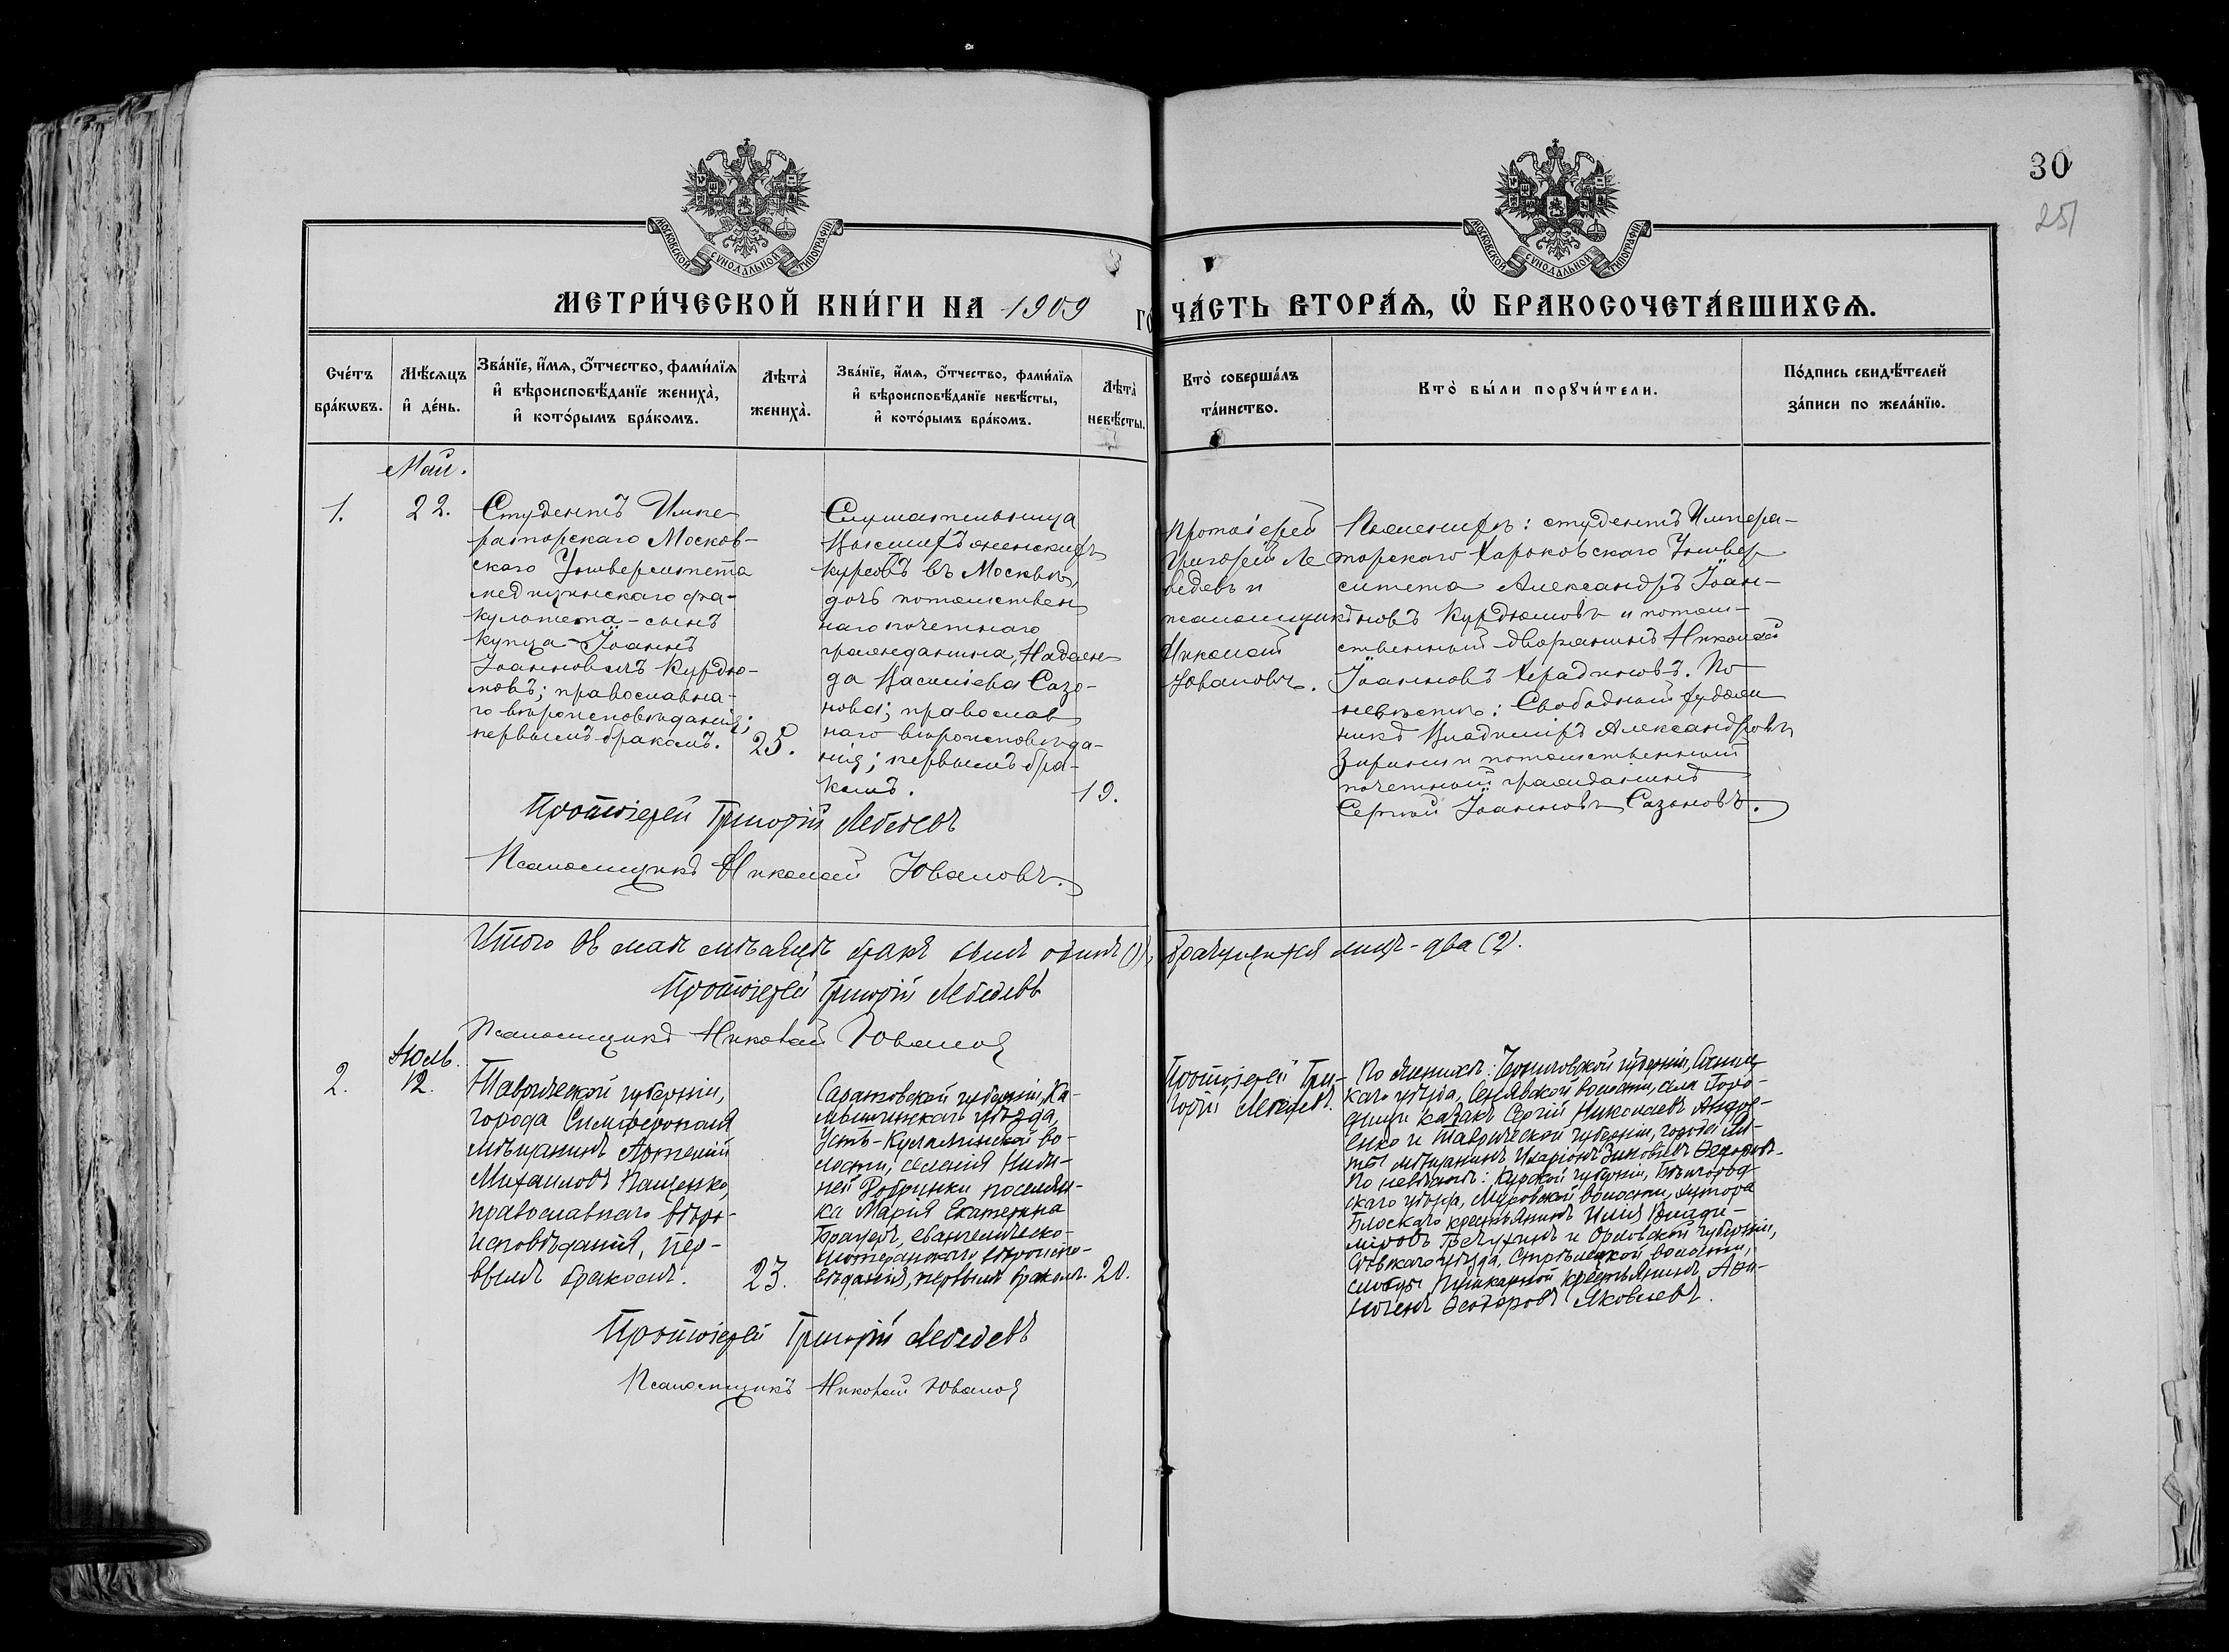 30
25
МОСКОВСКОЙ СѴНОДАЛЬНОЙ ТИПОГРАФІИ
МОСКОВСКОЙ СѴНОДАЛЬНОЙ ТИПОГРАФІИ
МЕТРИ́ЧЕСКОЙ КНИ́ГИ НА 1909 ГО
ЧА́СТЬ ВТОРА́Ѧ, Ѡ҆ БРАКОСОЧЕТА́ВШИХСѦ.
Сче́тъ
бра́кѡвъ.
Мѣ́сѧцъ
и҆ де́нь.
Зва́нїе, и҆́мѧ, ѻ҆́тчество, фами́лїѧ
и҆ вѣроисповѣ́данїе жениха̀,
и҆ кото́рымъ бра́комъ.
Лѣта̀
жениха̀.
Зва́нїе, и҆́мѧ, ѻ҆́тчество, фами́лїѧ
и҆ вѣроисповѣ́данїе невѣ́сты,
и҆ кото́рымъ бра́комъ.
Лѣта̀
невѣ́сты.
Кто̀ соверша́лъ
та́инство.
Кто̀ бы́ли порꙋчи́тели.
По́дпись свидѣ́телей
за́писи по жела́нїю.
Май.
1.
22.
Студентъ Импе
раторскаго Москов-
скаго Университета
медицинскаго фа-
культета - сынъ
купца - Іоаннъ
Іоанновичъ Курдю-
мовъ; православна-
го вѣроисповѣданія;
первымъ бракомъ.
25.
Слушательница
Высшихъ женскихъ
курсовъ въ Москвѣ,
дочь потомствен
наго почетнаго
гражданина, Надеж
да Васильева Сазо-
нова; православ
наго вѣроисповѣда-
нія; первымъ бра-
комъ.
19.
Протоіерей
Григорій Ле
бедевъ и
псаломщикъ
Николай
Юваловъ.
По женихѣ: студентъ Импера-
торскаго Харьковскаго Универ
ситета Александръ Іоан-
новъ Курдюмовъ и потом-
ственный дворянинъ Николай
Іоанновъ Керадиновъ. По
невѣстѣ: Свободный худож
никъ Владиміръ Александровъ
и потомственный
почетный гражданинъ
Сергѣй Іоанновъ Сазоновъ.
Протоіерей Григорій Лебедевъ
Псаломщикъ Николай Юваловъ.
Итого въ маѣ мѣсяцѣ бракъ былъ одинъ (1), брачущихся лицъ - два (2).
Протоіерей Григорій Лебедевъ
Псаломщикъ Николай Юваловъ
Іюль.
2.
12.
Таврической губерніи,
города Симферополя
мѣщанинъ Артемій
Михаиловъ Пащенко,
православнаго вѣро-
исповѣданія, пер-
вымъ бракомъ.
23.
Саратовской губерніи, Ка-
мышинскаго уѣзда,
Усть-Кулалинской во-
лости, селенія Ниж-
ней Добринки поселян-
ка Марія Екатерина
евангелическо-
лютеранскаго вѣроиспо-
вѣданія, первымъ бракомъ.
20.
Протоіерей Гри-
горій Лебедевъ.
По женихѣ: Черниговской губерніи,
каго уѣзда, волости, села Горо-
дищи казакъ Сергій Николаевъ Андре-
енко и Таврической губерніи, города
мѣщанинъ Иларіонъ Зиновьевъ Ѳедоровъ.
По невѣстѣ: Курской губерніи, Бѣлгород-
скаго уѣзда, Муромской волости, хутора
крестьянинъ Илія Влади-
міровъ и Орловской губерніи,
Сѣвскаго уѣзда, Стрѣлецкой волости,
слободы Пушкарной крестьянинъ
Ѳеодоровъ Яковлевъ.
Протоіерей Григорій Лебедевъ
Псаломщикъ Николай Юваловъ